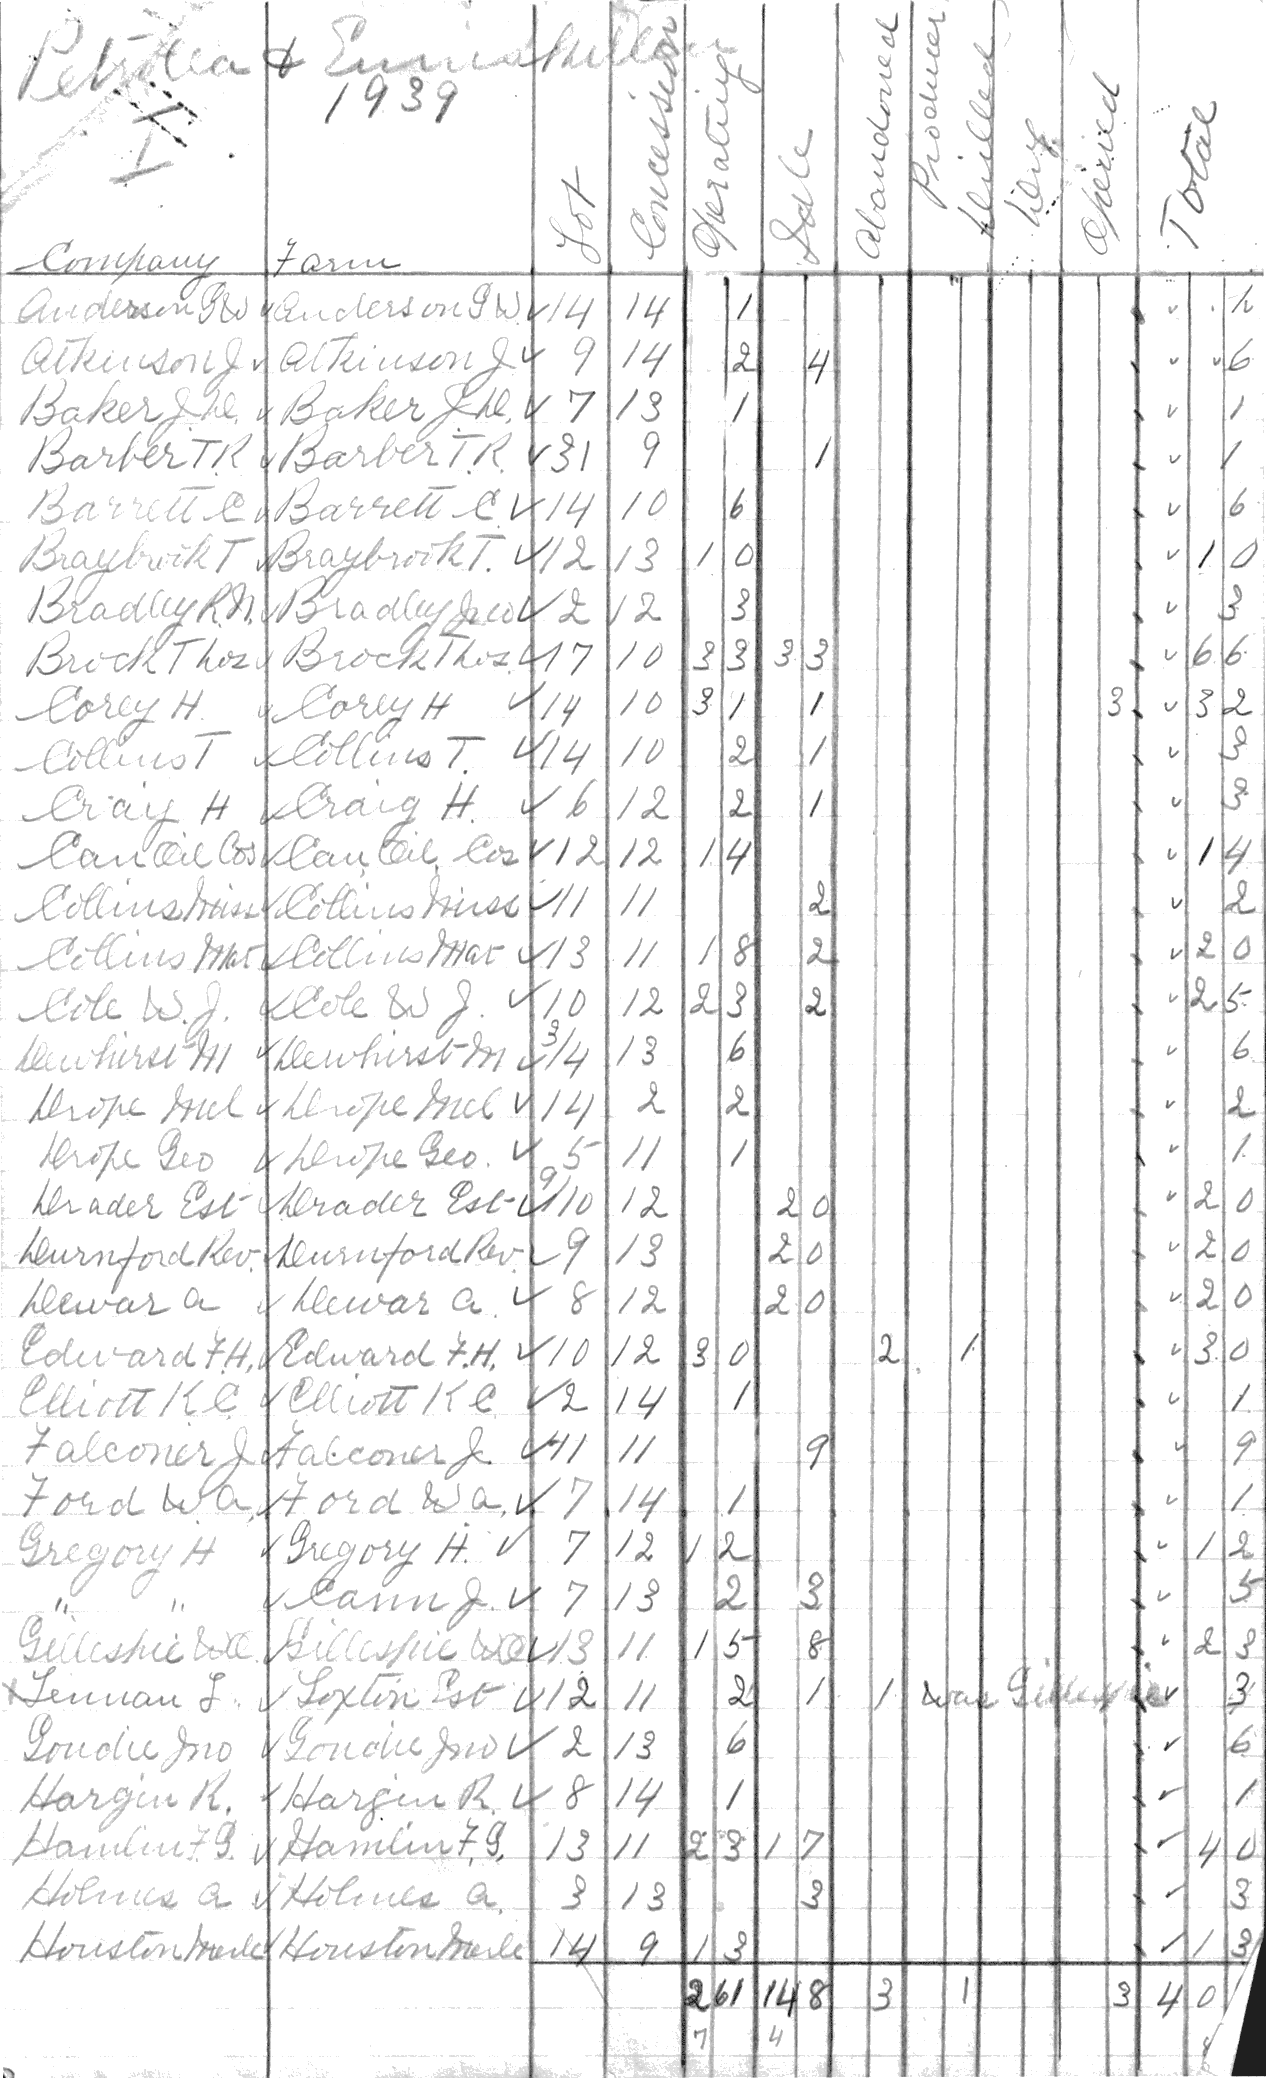 Petrolea & Enniskillen
1939
I
Company Farm Lot Concession Operating Idle Abandoned Producer Drilled Dry Opened Total
Anderson G W ✓ Anderson G W. ✓ 14 14 1 ✓
Atkinson J ✓ Atkinson J ✓ 9 14 2 4 ✓ 6
Baker J. D. ✓ Baker J. D. ✓ 7 13 1 ✓ 1
Barber T. R ✓ Barber T. R. ✓ 31 9 1 ✓ 1
Barrett C ✓ Barrett C. ✓ 14 10 6 ✓ 6
Braybrook T ✓ Braybrook T. ✓ 12 13 10 ✓ 10
Bradley R. N. ✓ Bradley Geo ✓ 2 12 3 ✓ 3
Brock Thos ✓ Brock Thos. ✓ 17 10 33 33 ✓ 66
Corey H ✓ Corey H ✓ 14 10 31 1 3 ✓ 32
Collins T ✓ Collins T. ✓ 14 10 2 1 ✓ 3
Craig H ✓ Craig H. ✓ 6 12 2 1 ✓ 3
Can Oil Cos ✓ Can. Oil. Cos ✓ 12 12 14 ✓ 14
Collins Miss ✓ Collins Miss ✓ 11 11 2 ✓ 2
Collins Mat ✓ Collins Mat ✓ 13 11 18 2 ✓ 20
Cole W. J. ✓ Cole W J. ✓ 10 12 23 2 ✓ 25
Dewhirst M ✓ Dewhirst M ✓ 3/14 13 6 ✓ 6
Drope Mel ✓ Drope Mel ✓ 14 2 2 ✓ 2
Drope Geo ✓ Drope Geo. ✓ 5 11 1 ✓ 1
Drader Est ✓ Drader Est ✓ 9/10 12 20 ✓ 20
Durnford Rev. ✓ Durnford Rev. ✓ 9 13 20 ✓ 20
Dewar A ✓ Dewar A. ✓ 8 12 20 ✓ 20
Edward F. H. ✓ Edward F. H. ✓ 10 12 30 2 1 ✓ 30
Elliott K C ✓ Elliott K C ✓ 2 14 1 ✓ 1
Falconer J ✓ Falconer J. ✓ 11 11 9 ✓ 9
Ford W. A. ✓ Ford W A. ✓ 7 14 1 ✓ 1
Gregory H ✓ Gregory H. ✓ 7 12 12 ✓ 12
" " ✓ Cann J. ✓ 7 13 2 3 ✓ 5
Gillespie W C ✓ Gillespie W C ✓ 13 11 15 8 ✓ 23
x Lennan L. ✓ Loxton Est ✓ 12 11 2 1 1 was Gillespie ✓ 3
Goudie Jno ✓ Goudie Jno ✓ 2 13 6 ✓ 6
Hargin R. ✓ Hargin R. ✓ 8 14 1 ✓ 1
Hamlin F. G. ✓ Hamlin F. G. 13 11 23 17 ✓ 40
Holmes A ✓ Holmes A. 3 13 3 ✓ 3
Houston Merle ✓ Houston Merle 14 9 13 ✓ 13
261 148 3 1 3 40
7 4